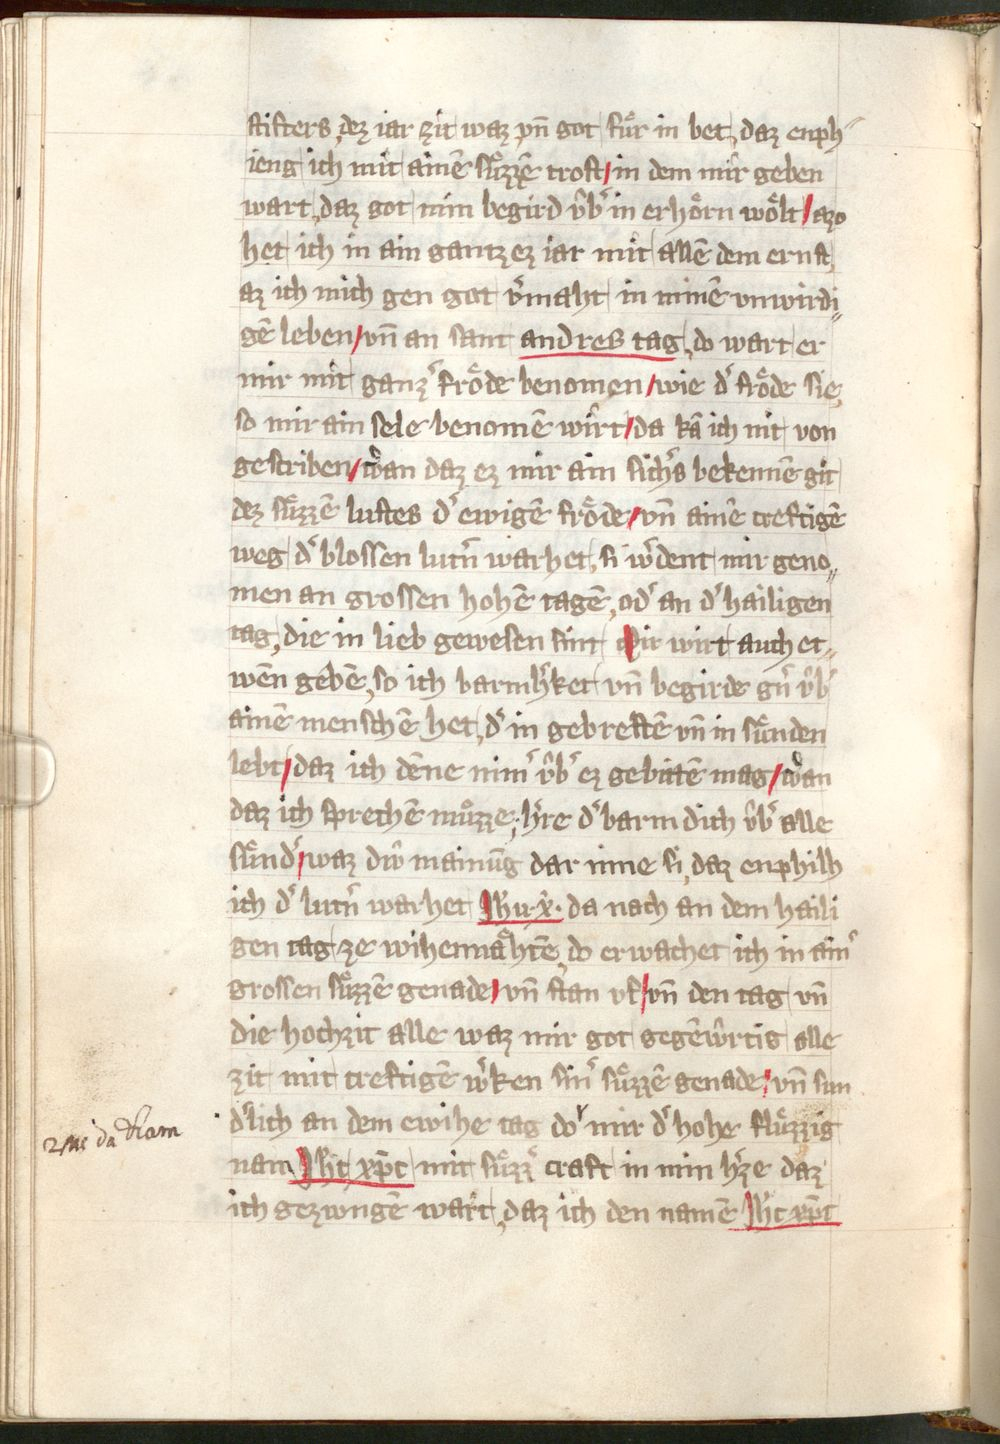 stifters, dez iar zit waz, vn̄ got fuͤr in bet, daz enph〃
ieng ich mit ainē suͤzzē trost/ in dem mir geben
wart, daz got min begird v̂b᷑ in erhoͤrn woͤlt/ azo
het ich in ain gantzez iar mit allē dem ernst,
az ich mich gen got v᷑maht in minē vnwirdi〃
gē leben/ vn̄ an sant andres tag, do wart er
mir mit ganz᷑ froͤde benomen/ wie d᷑ froͤde sie,
so mir ain sele benomē wirt/ da kā ich nit von
gescriben/ wan daz ez mir ain sich᷑s bekennē git
dez suͤzzē lustes d᷑ ewigē froͤde/ vn̄ ainē creftigē
weg d᷑ blossen lut᷑n warhet, si w᷑dent mir geno〃
men an grossen hohē tagē, od᷑ an d᷑ hailigen
tag, die in lieb gewesen sint Mir wirt auch et〃
wēn gebē, so ich barmh᷑ket vn̄ begirde gn᷑ v̂b᷑
ainē menschē het, d᷑ in gebrestē vn̄ in suͤnden
lebt/ daz ich dēne nim᷑ v̂b᷑ ez gebitē mag/ wan
daz ich sprechē muͦzze; h᷑re d᷑barm dich v̂b᷑ alle
suͤnd᷑/ waz diŵ mainūg dar inne si, daz enphilh
ich d᷑ lut᷑n warhet Jhu·x̄· da nach an dem haili
gen tag ze wihennaͤhtē, do erwachet ich in ain᷑
grossen suͤzzē genade/ vn̄ stan vf/ vn̄ den tag vn̄
die hochzit alle waz mir got gegēŵrtig alle
zit mit creftigē w᷑ken sin᷑ suͤzzē genade/ vn̄ sun
d᷑lich an dem ewihe tag do mir d᷑ hohe fluͤzzig
nam Jhc xp̄c mit suͤzz᷑ craft in min h᷑ze daz
ich gezwngē wart, daz ich den namē Jhc xp̄c